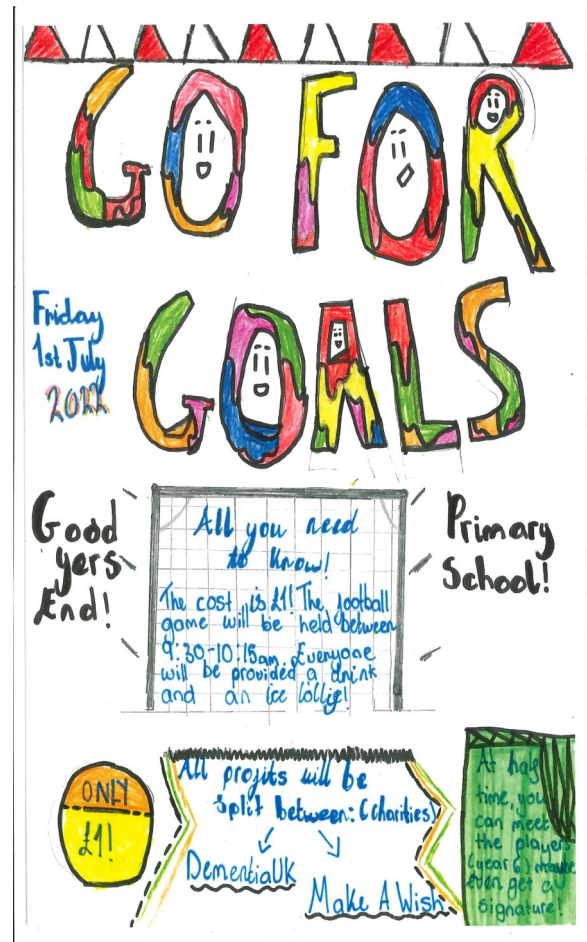 GO FOR
GOALS
Friday
1st July
2022
Good
yers
End!
Primary
School!
All you need
to know!
The cost is £1! The football
game will be held between
9:30-10:15am. Everyone
will be provided a drink
and an ice lollie!
ONLY
£1!
All profits will be
split between: (charities)
DementiaUK
Make A Wish
At half
time, you
can meet
the players
(year 6) maybe
even get a
signature!